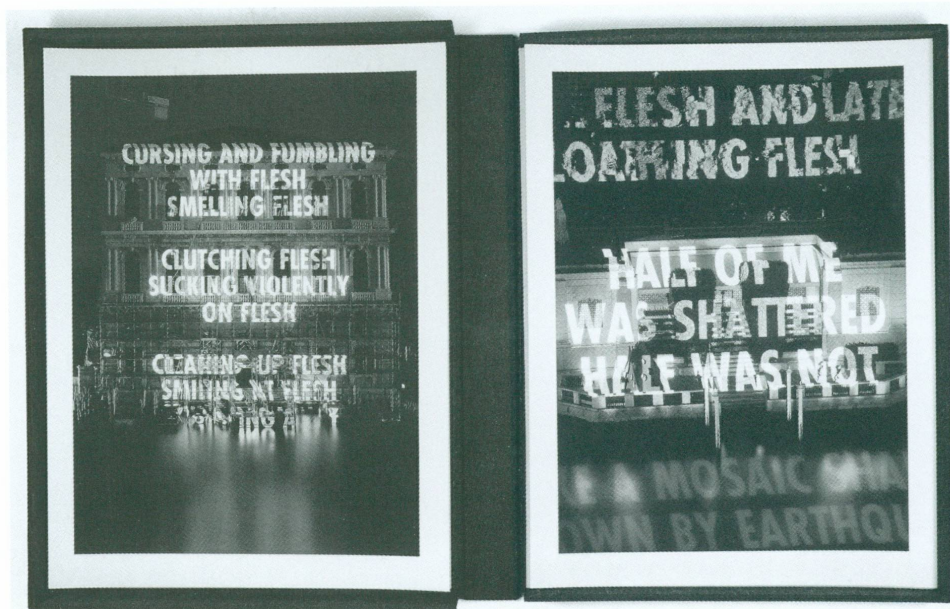 CURSING AND FUMBLING
WITH FLESH
SMELLING FLESH
CLUTCHING FLESH
SUCKING VIOLENTLY
ON FLESH
CLEANING UP FLESH
SMILING AT FLESH
FLESH AND LATE
LOATHING FLESH
HALF OF ME
WAS SHATTERED
HALF WAS NOT
KE A MOSAIC SHA
OWN BY EARTHQU